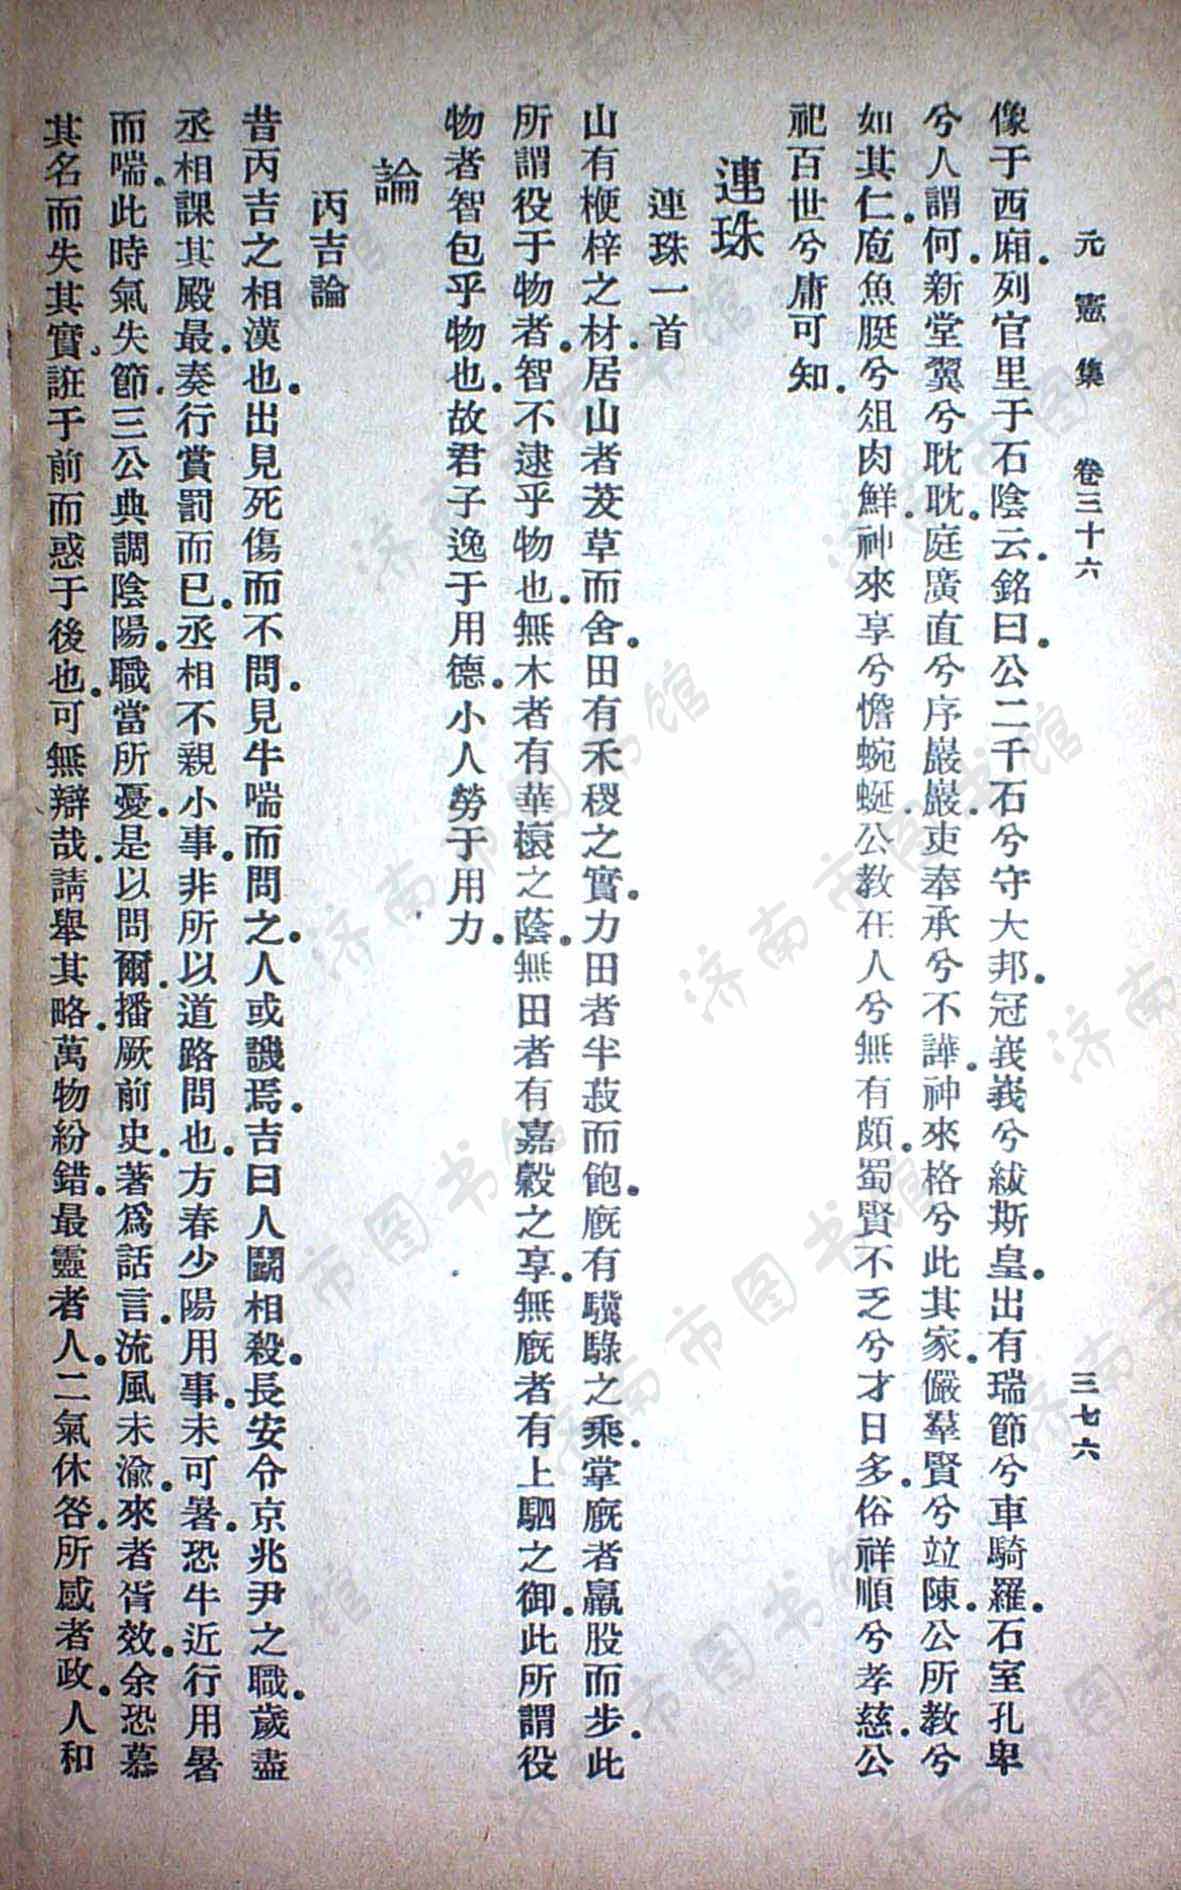 元憲集 卷三十六 三七六
像于西廂。列官里于石陰云。銘曰。公二千石兮守大邦。冠峩峩兮紱斯皇。出有瑞節兮車騎羅。石室孔卑
兮人謂何。新堂翼兮耽耽。庭廣直兮序巖巖。吏奉承兮不譁。神來格兮此其家。儼羣賢兮竝陳。公所教兮
如其仁。庖魚脡兮俎肉鮮。神來享兮憺蜿蜒。公教在人兮無有頗。蜀賢不乏兮才日多。俗祥順兮孝慈。公
祀百世兮庸可知。
連珠
連珠一首
山有梗梓之材。居山者茇草而舍。田有禾稷之實。力田者半菽而飽。廐有驥騄之乘。掌廐者羸股而步。此
所謂役于物者。智不逮乎物也。無木者有華榱之蔭。無田者有嘉穀之享。無廐者有上駟之御。此所謂役
物者智包乎物也。故君子逸于用德。小人勞于用力。
論
丙吉論
昔丙吉之相漢也。出見死傷而不問。見牛喘而問之。人或譏焉。吉曰人鬭相殺。長安令京兆尹之職。歲盡
丞相課其殿最。奏行賞罰而已。丞相不親小事。非所以道路問也。方春少陽用事。未可暑。恐牛近行用暑
而喘。此時氣失節。三公典調陰陽。職當所憂。是以問爾。播厥前史。著爲話言。流風未渝。來者胥效。余恐慕
其名而失其實。誑于前而惑于後也。可無辯哉。請舉其略。萬物紛錯。最靈者人。二氣休咎。所感者政。人和